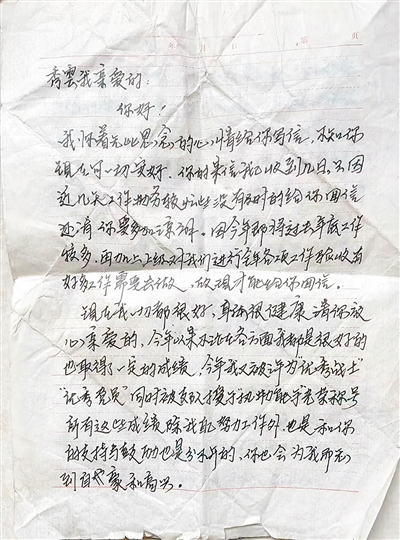 年 月 日 第 页
秀雲我亲爱的:
你好!
我怀着无比思念的心情给你写信,不知你
现在可一切安好。你的来信我已收到几日,只因
近几天工作的劳敏忙些没有及时的给你回信
还请你要多加谅解。因今年即将过去年底工作
较多,再加上上级对我们进行全年各项工作验收有
好多工作需要去做,故现才能给你回信。
现在我一切都很好,身体很健康请你放
心亲爱的,今年以来不论在各方面我都是很好的
也取得了一定的成绩,今年我又被评为“优秀战士”
“优秀党员”同时被支队授于“训练能手”光荣称号
所有这些成绩除我自己努力工作外,也是和你
的支持与鼓励也是分不开的,你也会为我而感
到自豪和高兴。